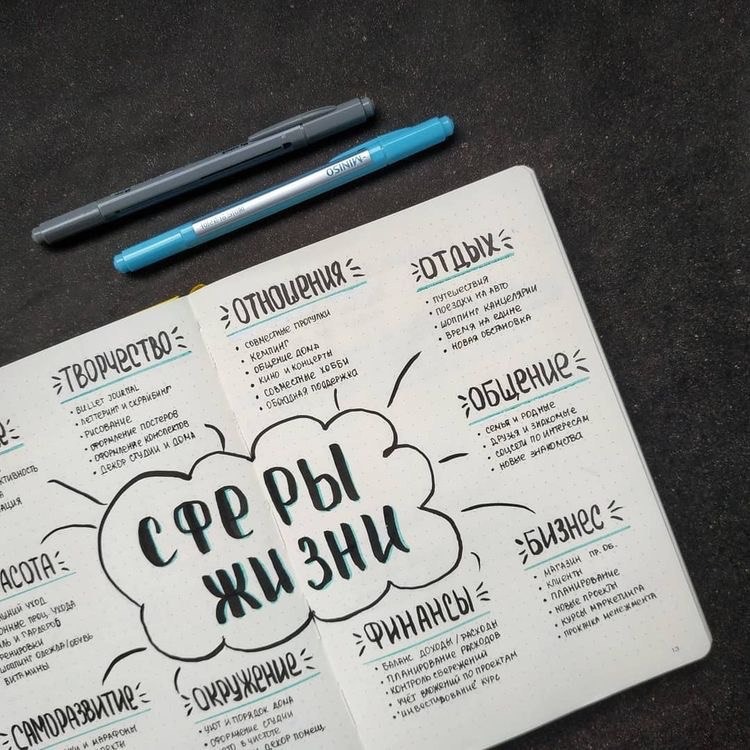 MINISO
ТВОРЧЕСТВО
• BULLET JOURNAL
• ЛЕТТЕРИНГ И СКРАЙБИНГ
• РИСОВАНИЕ
• ОФОРМЛЕНИЕ ПОСТЕРОВ
• ОФОРМЛЕНИЕ КОНСПЕКТОВ
• ДЕКОР СТУДИИ И ДОМА
ОТНОШЕНИЯ
• СОВМЕСТНЫЕ ПРОГУЛКИ
• КЕМПИНГ
• ОБЩЕНИЕ ДОМА
• КИНО И КОНЦЕРТЫ
• СОВМЕСТНЫЕ ХОББИ
• ОБОЮДНАЯ ПОДДЕРЖКА
ОТДЫХ
• ПУТЕШЕСТВИЯ
• ПОЕЗДКИ НА АВТО
• ШОППИНГ КАНЦЕЛЯРИИ
• ВРЕМЯ НА ЕДИНЕ
• НОВАЯ ОБСТАНОВКА
ОБЩЕНИЕ
• СЕМЬЯ И РОДНЫЕ
• ДРУЗЬЯ И ЗНАКОМЫЕ
• СОЦСЕТИ ПО ИНТЕРЕСАМ
• НОВЫЕ ЗНАКОМСТВА
СФЕРЫ
ЖИЗНИ
БИЗНЕС
• МАГАЗИН ПР. DG.
• КЛИЕНТЫ
• ПЛАНИРОВАНИЕ
• НОВЫЕ ПРОЕКТЫ
• КУРСЫ МАРКЕТИНГА
• ПРАКТИКА МЕНЕЖМЕНТА
ФИНАНСЫ
• БАЛАНС ДОХОДЫ/РАСХОДЫ
• ПЛАНИРОВАНИЕ РАСХОДОВ
• КОНТРОЛЬ СБЕРЕЖЕНИЙ
• УЧЁТ ВЛОЖЕНИЙ ПО ПРОЕКТАМ
• ИНВЕСТИРОВАНИЕ КУРС
13
ОКРУЖЕНИЕ
• УЮТ И ПОРЯДОК ДОМА
• ОФОРМЛЕНИЕ СТУДИИ
В ЧИСТОТЕ
ДЕКОР ПОМЕЩ.
АСОТА
УХОД
УХОДА
И ГАРДЕРОБ
ШОППИНГ ОДЕЖДА/ОБУВЬ
ВИТАМИНЫ
САМОРАЗВИТИЕ
И МАРАФОНЫ